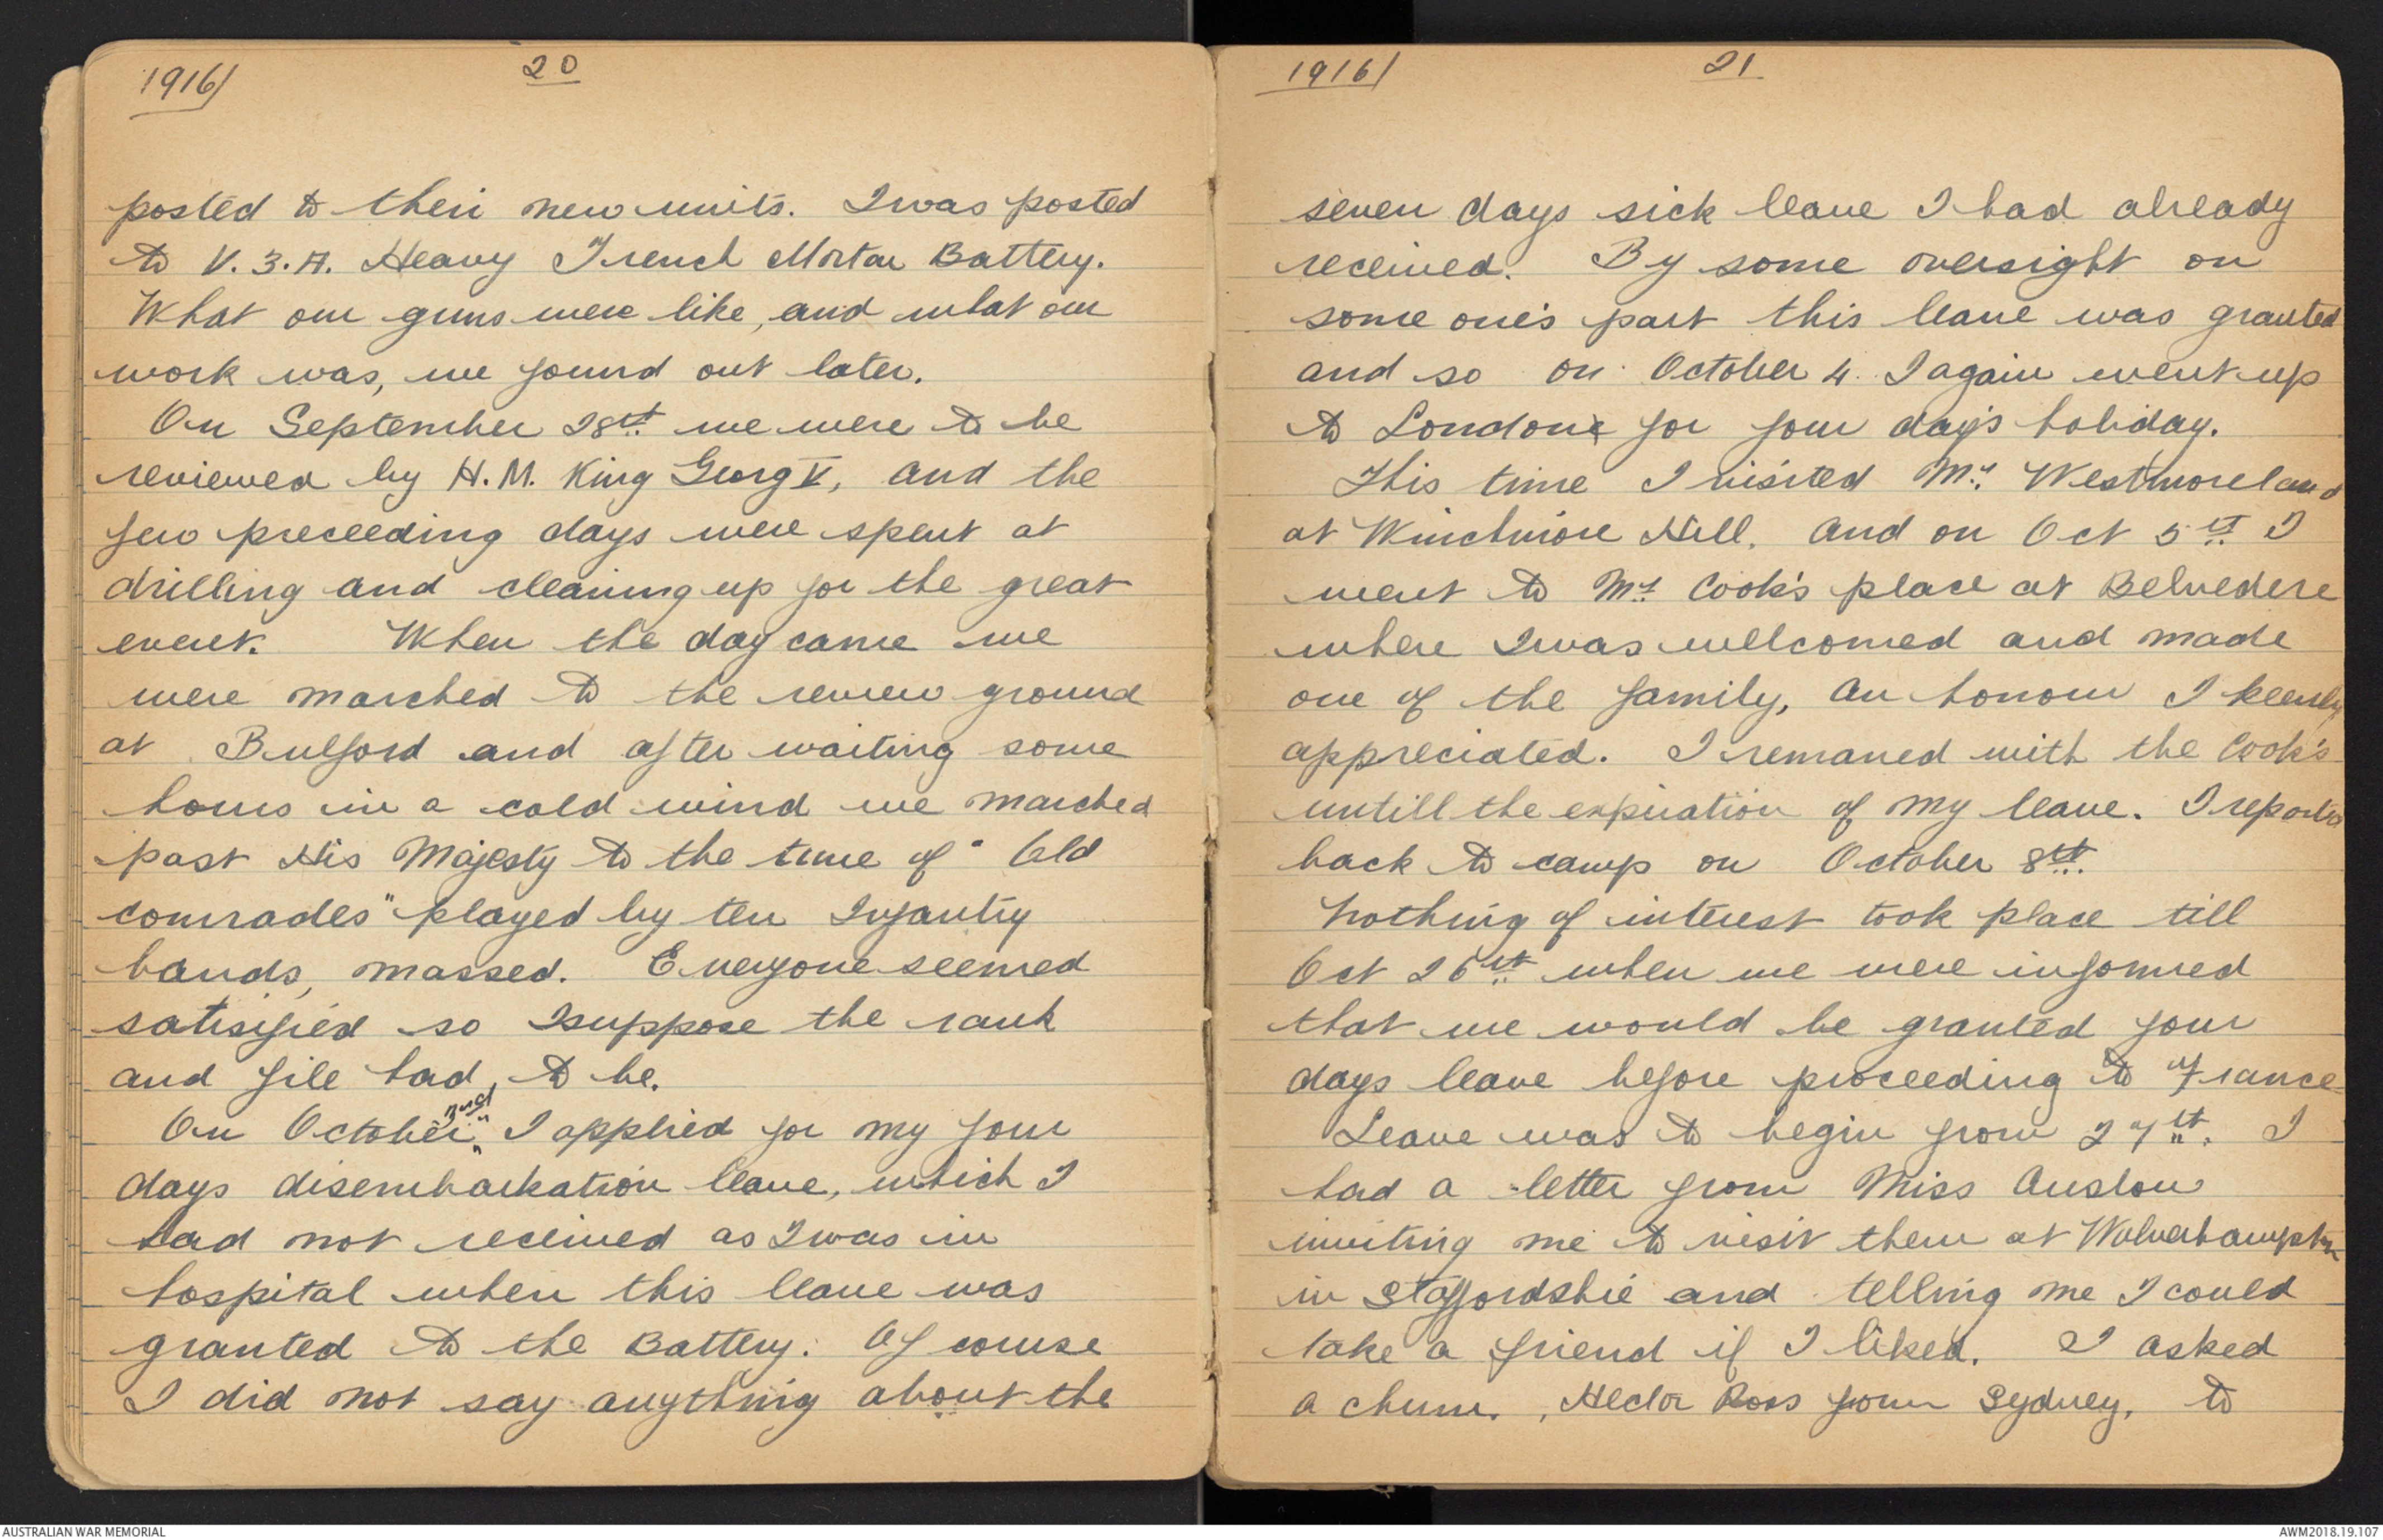 1916/
20
posted to their new units. I was posted
to V.3.A. Heavy Trench Mortar Battery.
What our guns were like, and what our
work was, we found out later.
On September 28th we were to be
reviewed by H.M. King Georg V, and the
few preceeding days were spent at
drilling and cleaning up for the great
event. When the day came we
were marched to the review ground
at Bulford and after waiting some
hours in a cold wind we marched
past His Majesty to the tune of "Old
comrades" played by ten Infantry
bands, massed. Everyone seemed
satisified so I suppose the rank
and file had, to be.
On October 2nd I applied for my four
days disembarkation leave, which I
had not received as I was in
hospital when this leave was
granted to the Battery. Of course
I did not say anything about the
1916/
21
seven days sick leave I had already
received. By some oversight on
some one's part this leave was granted
and so on October 4 I again went up
to London for four day's holiday.
This time I visited Mr Westmoreland
at Winchmore Hill. And on Oct 5th I
went to Mr Cook's place at Belvedere
where I was wellcomed and made
one of the family, an honour I keenly
appreciated. I remaned with the Cook's
untill the expiration of my leave. I reported
back to camp on October 8th.
Nothing of interest took place till
Oct 26th when we were informed
that we would be granted four
days leave before proceeding to France
Leave was to begin from 27th. I
had a letter from Miss Anslow
inviting me to visit them at Wolverhampton
in Staffordshie and telling me I could
take a friend if I liked. I asked
a chum, Hector Ross from Sydney, to
AUSTRALIAN WAR MEMORIAL
AWM2018.19.107